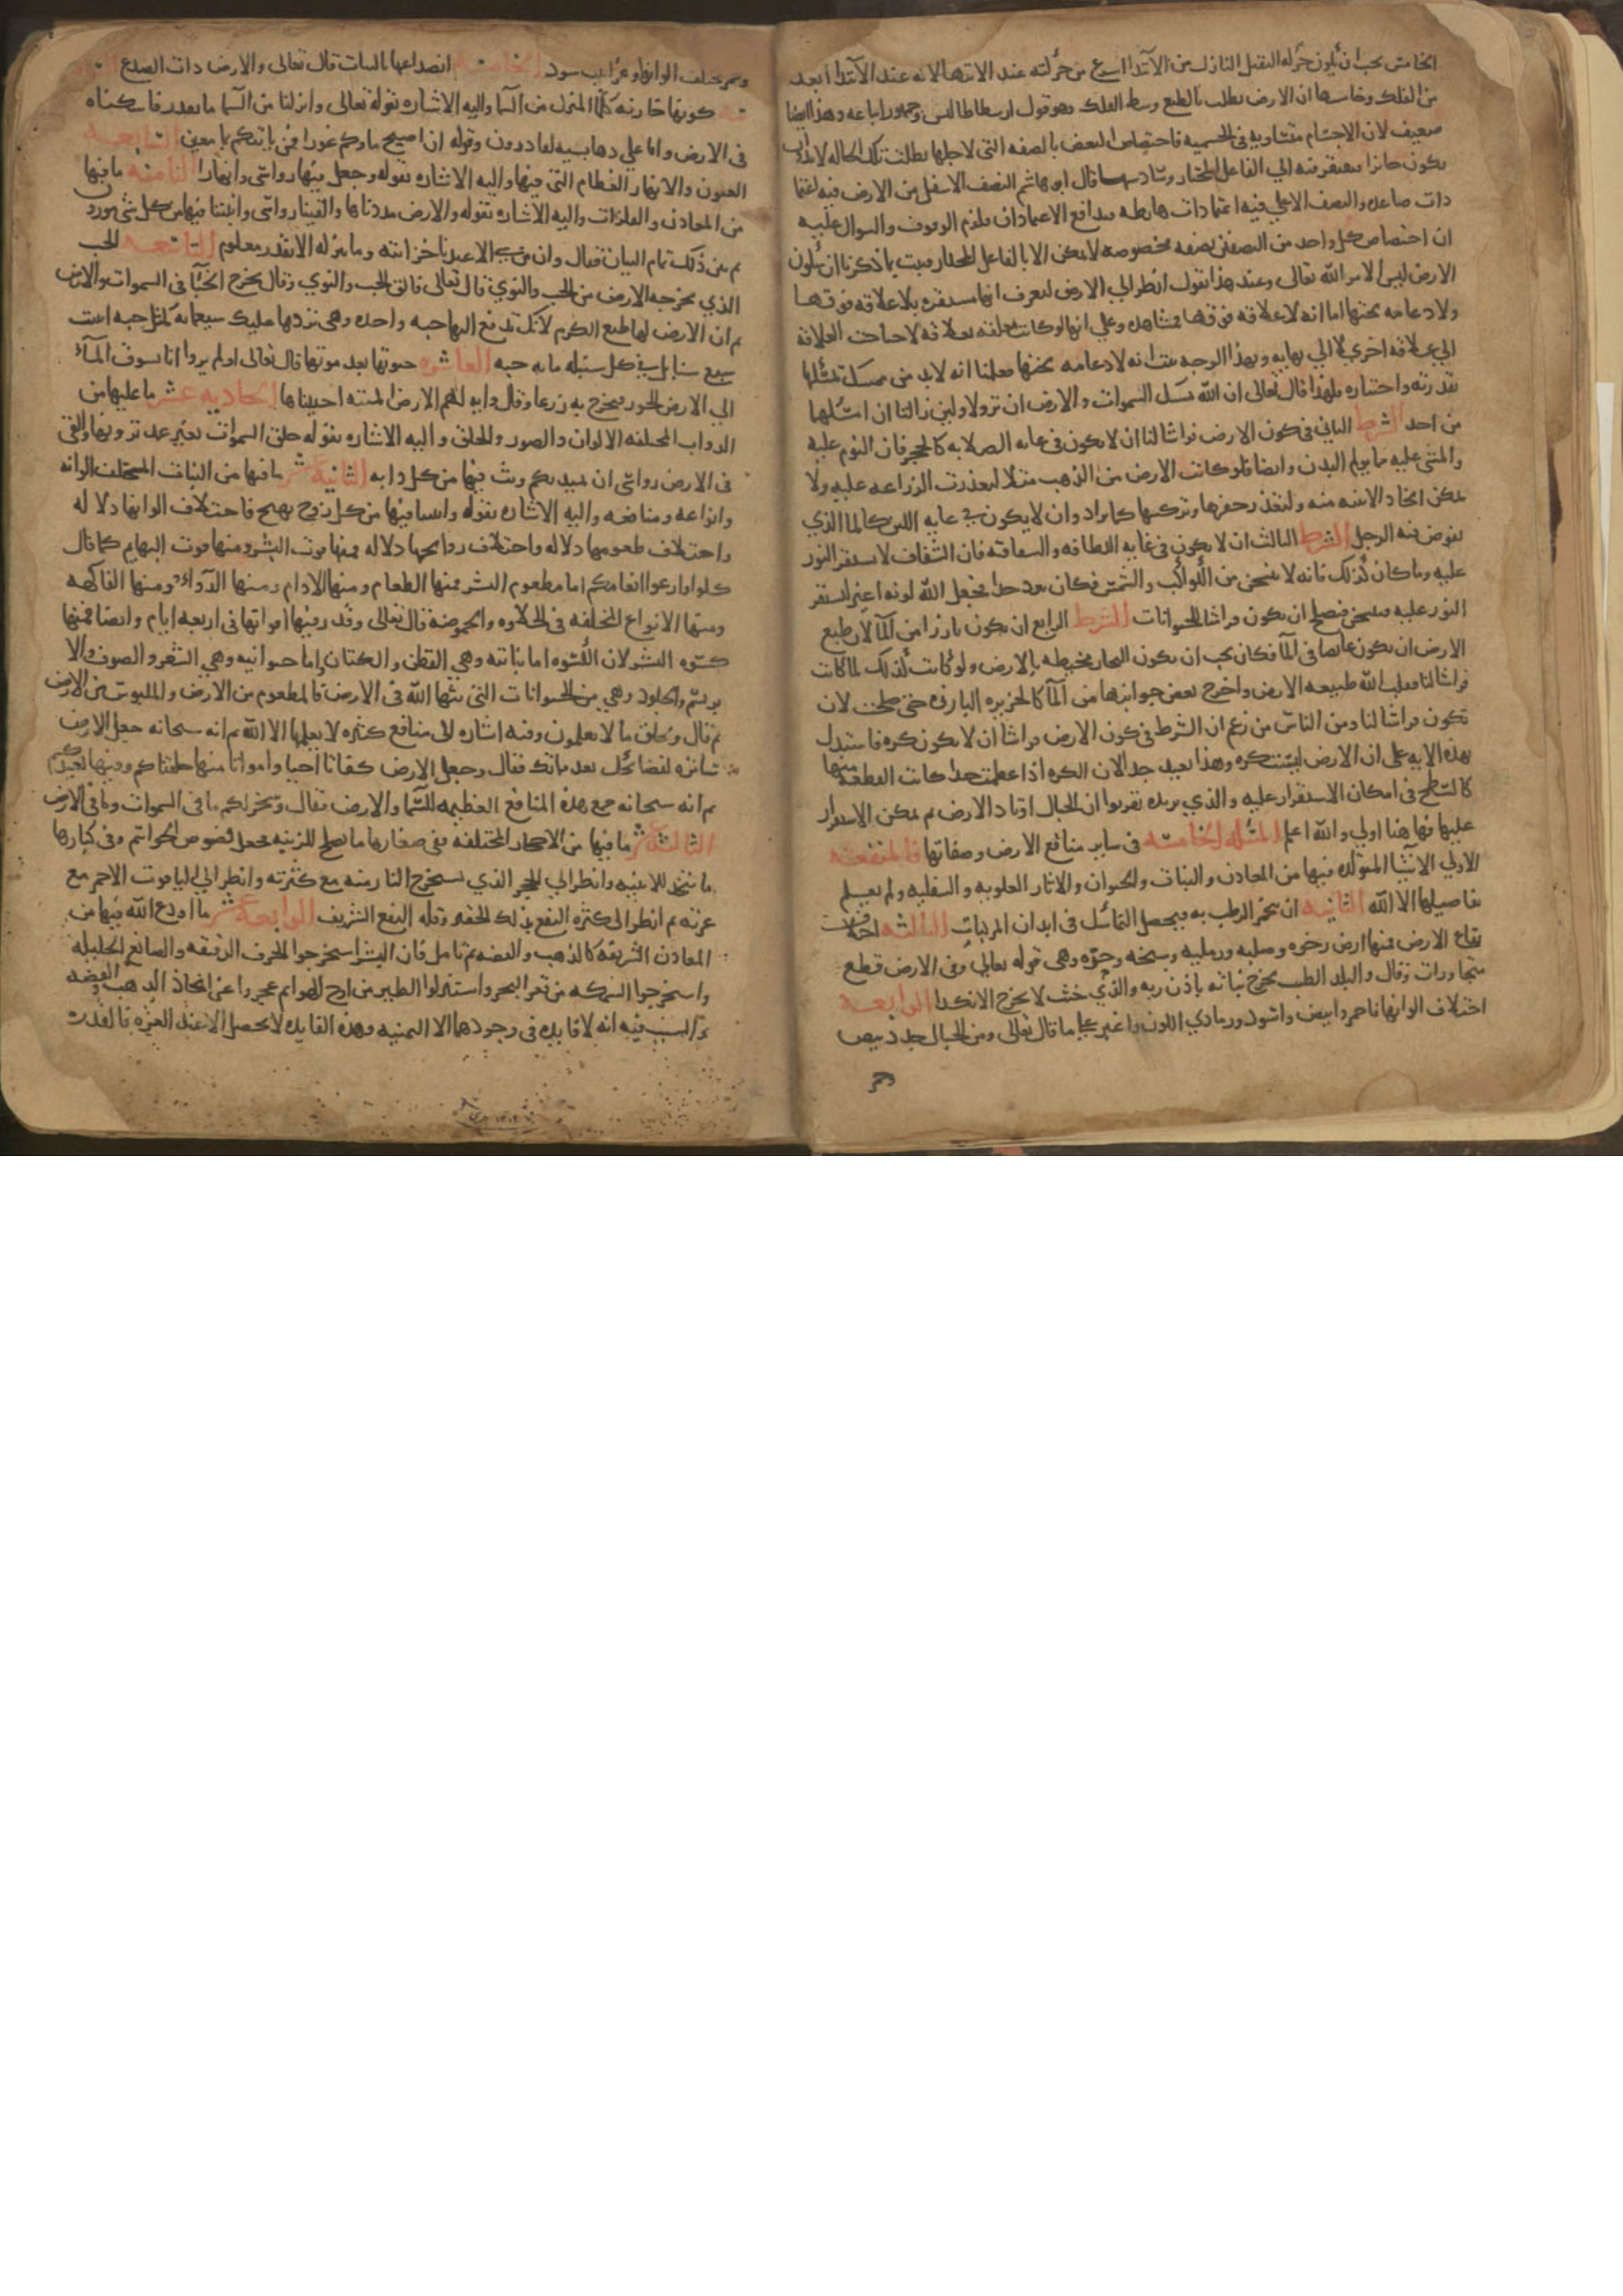 الخامس يجب ان يكون حركه الثقيل النازل من الابتدا اسرع من حركته عند الانتها لانه عند الابتدا ابعد
من الفلك وخامسها ان الارض يطلب بالطبع وسط الفلك وهو قول ارسطاطاليس وجمهور اتباعه وهذا ايضا
ضعيف لان الاجسام متساويه في الجسميه فاختصاص البعض بالصفه التي لاجلها يطلب تلك الحاله لابد وان
يكون جائزا فيفتقر فيه الي الفاعل المختار وسادسها قال ابو هاشم النصف الاسفل من الارض فيه اعتما
دات صاعده والنصف الاعلي فيه اعتمادات هابطه فتدافع الاعتمادان فلزم الوقوف والسوال عليه
ان اختصاص كل واحد من النصفين بصفه مخصوصه لا يمكن الا بالفاعل المختار فثبت بما ذكرنا ان سكون
الارض ليس الا من الله تعالي وعند هذا نقول انظر الي الارض لتعرف انها مستقره بلا علاقه فوقها
ولا دعامه تحتها اما انه لا علاقه فوقها فمشاهد وعلي انها لو كانت معلقه بعلاقه لاحتاجت العلاقه
الي علاقه اخري لا الي نهايه وبهذا الوجه ثبت انه لا دعامه تحتها فعلمنا انه لابد من ممسك يمسكها
بقدرته واختياره ولهذا قال تعالي ان الله يمسك السموات والارض ان تزولا ولين زالتا ان امسكهما
من احد الشرط الثاني في كون الارض فراشا لنا ان لا يكون في غايه الصلابه كالحجر فان النوم عليه
والمشي عليه مما يولم البدن وايضا فلو كانت الارض من الذهب مثلا لتعذرت الزراعه عليه ولا
يمكن اتخاذ الابنيه منه ولتعذر حفرها وتركيبها كما يراد وان لا يكون في غايه اللين كالما الذي
يغوص فيه الرجل الشرط الثالث ان لا يكون في غايه اللطافه والشفافه فان الشفاف لا يستقر النور
عليه وما كان كذلك فانه لا يتسخن من الكواكب والشمس فكان يبرد جدا فجعل الله لونه اغبر ليستقر
النور عليه فيتسخن فيصلح ان يكون فراشا للحيوانات الشرط الرابع ان يكون بارزا من الما لان طبع
الارض ان يكون غايصا في الما فكان يجب ان يكون البحار محيطه بالارض ولو كانت كذلك لما كانت
فراشا لنا فقلب الله طبيعه الارض واخرج بعض جوانبها من الما كالجزيره البارزه حتي صلحت لان
تكون فراشا لنا ومن الناس من زعم ان الشرط في كون الارض فراشا ان لا يكون كره فاستدل
بهذه الايه علي ان الارض ليست كره وهذا بعيد جدا لان الكره اذا عظمت جدا كانت القطعه منها
كالسطح في امكان الاستقرار عليه والذي يزيده تقريرا ان الجبال اوتاد الارض ثم يمكن الاستقرار
عليها فهاهنا اولي والله اعلم المسئله الخامسه في ساير منافع الارض وصفاتها فالمنفعه
الاولي الاشيا المتولده فيها من المعادن والنبات والحيوان والاثار العلويه والسفليه ولم يعلم
تفاصيلها الا الله الثانيه ان يتخمر الرطب به فيحصل التماسك في ابدان المركبات الثالثه اختلاف
بقاع الارض فمنها ارض رخوه وصلبه ورمليه وسبخه وحره وهي قوله تعالي وفي الارض قطع
متجاورات وقال والبلد الطيب يخرج نباته باذن ربه والذي خبث لا يخرج الا نكدا الرابعه
اختلاف الوانها فاحمر وابيض واسود ورمادي اللون واغبر علي ما قال تعالي ومن الجبال جدد بيض
وحمر
وحمر مختلف الوانها وغرابيب سود الخامسه انصداعها بالنبات قال تعالي والارض ذات الصدع
كونها خازنه للما المنزل من السما واليه الاشاره بقوله تعالي وانزلنا من السما ما بقدر فاسكناه
في الارض وانا علي ذهاب به لقادرون وقوله ان اصبح ماوكم غورا فمن ياتيكم بما معين السابعه
العيون والانهار العظام التي فيها واليه الاشاره بقوله وجعل فيها رواسي وانهارا الثامنه ما فيها
من المعادن والفلزات واليه الاشاره بقوله والارض مددناها والقينا فيها رواسي وانبتنا فيها من كل شي موزون
ثم بين ذلك تمام البيان فقال وان من شي الا عندنا خزائنه وما ننزله الا بقدر معلوم التاسعه الحب
الذي يخرجه الارض من الحب والنوي قال تعالي فالق الحب والنوي وقال يخرج الخبا في السموات والارض
ثم ان الارض لها طبع الكرم لانك تدفع اليها حبه واحده وهي تردها عليك سبعمايه كمثل حبه انبتت
سبع سنابل في كل سنبله مايه حبه العاشره حيوتها بعد موتها قال تعالي اولم يروا انا نسوق الماء
الي الارض الجرز فنخرج به زرعا وقال وايه لهم الارض الميته احييناها الحاديه عشر ما عليها من
الدواب المختلفه الالوان والصور والخلق واليه الاشاره بقوله خلق السموات بغير عمد ترونها والقي
في الارض رواسي ان تميد بكم وبث فيها من كل دابه الثانيه عشر ما فيها من النبات المختلف الوانه
وانواعه ومنافعه واليه الاشاره بقوله وانبتنا فيها من كل زوج بهيج فاختلاف الوانها دلاله
واختلاف طعومها دلاله واختلاف روايحها دلاله فمنها قوت البشر ومنها قوت البهايم كما قال
كلوا وارعوا انعامكم اما مطعوم البشر فمنها الطعام ومنها الادام ومنها الدواء ومنها الفاكهه
ومنها الانواع المختلفه في الحلاوه والحموضه قال تعالي وقدر فيها اقواتها في اربعه ايام وايضا فمنها
كسوه البشر لان الكسوه اما نباتيه وهي القطن والكتان واما حيوانيه وهي الشعر والصوف والا
بريسم والجلود وهي من الحيوانات التي بثها الله في الارض فالمطعوم من الارض والملبوس من الارض
ثم قال ويخلق ما لا تعلمون وفيه اشاره الي منافع كثيره لا يعلمها الا الله ثم انه سبحانه جعل الارض
ساتره لقبايحك بعد مماتك فقال وجعل الارض كفاتا احيا وامواتا منها خلقناكم وفيها نعيدكم
ثم انه سبحانه جمع هذه المنافع العظيمه للسما والارض فقال وسخر لكم ما في السموات وما في الارض
الثالثه عشر ما فيها من الاحجار المختلفه ففي صغارها ما يصلح للزينه فيجعل فصوص الخواتم وفي كبارها
ما يتخذ للابنيه وانظر الي الحجر الذي تستخرج النار منه مع كثرته وانظر الي الياقوت الاحمر مع
عزته ثم انظر الي كثره النفع بذلك الحقير وقله النفع الشريف الرابعه عشر ما اودع الله فيها من
المعادن الشريفه كالذهب والفضه ثم تامل فان البشر استخرجوا الحرف الدقيقه والصنايع الجليله
واستخرجوا السمكه من قعر البحر واستنزلوا الطير من اوج الهوا ثم عجزوا عن اتخاذ الذهب والفضه
والسبب فيه انه لا فايده في وجودهما الا الثمنيه وهذه الفايده لا يحصل الا عند العزه فالقدرت